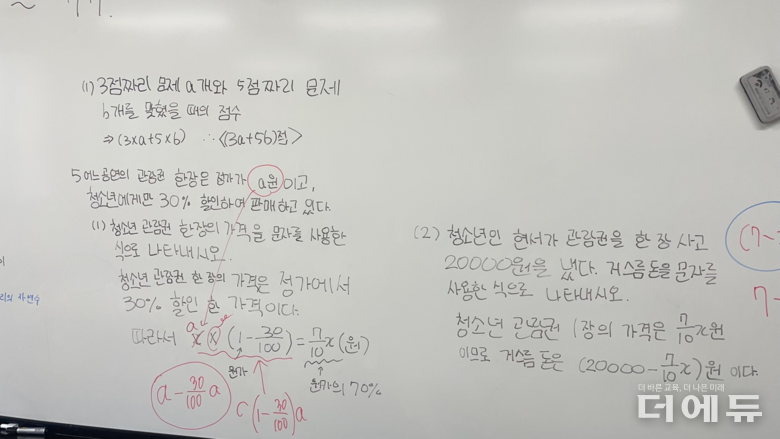 (1) 3점짜리 문제 a개와 5점짜리 문제
b개를 맞혔을 때의 점수
⇒ (3×a+5×b) ∴ <(3a+5b)점>
5 어느공연의 관람권 한장은 정가가 a원 이고,
청소년에게만 30% 할인하여 판매하고 있다.
(1) 청소년 관람권 한장의 가격을 문자를 사용한
식으로 나타내시오.
청소년 관람권 한 장의 가격은 정가에서
30% 할인 한 가격이다.
a
따라서 x(x)(1-30/100)=7/10x(원)
원가
원가의 70%
a-30/100a
(1-30/100)a
(2) 청소년인 현서가 관람권을 한 장 사고
20000원을 냈다. 거스름돈을 문자를
사용한 식으로 나타내시오.
청소년 관람권 1장의 가격은 7/10x원
이므로 거스름 돈은 (20000-7/10x)원 이다.
(7-
7-
더 바른 교육, 더 나은 미래
더에듀